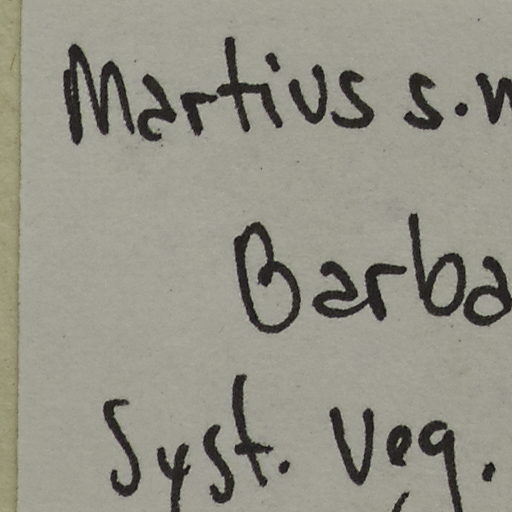 Martius s.n
Barba
Syst. Veg.